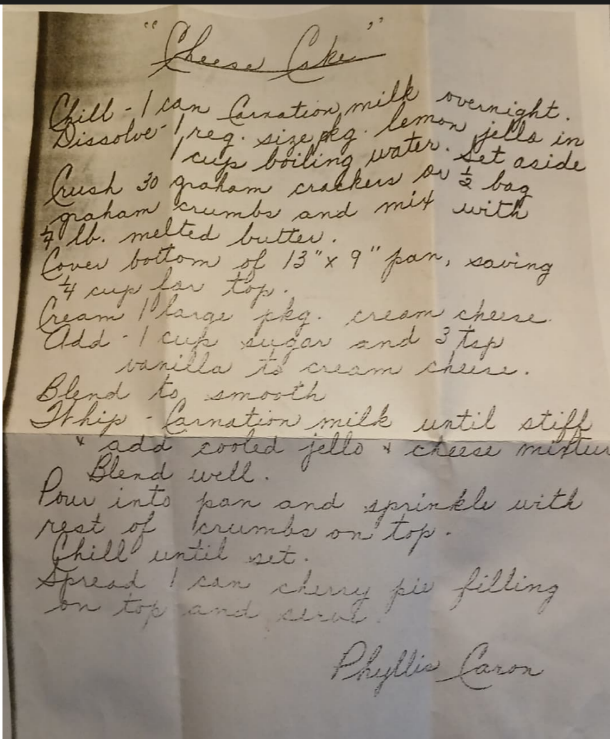 "Cheese Cake"
Chill - 1 can Carnation milk overnight.
Dissolve - 1 reg. size pkg. lemon jello in
1 cup boiling water. Set aside
Crush 30 graham crackers or ½ bag
graham crumbs and mix with
¼ lb. melted butter.
Cover bottom of 13" x 9" pan, saving
¼ cup for top.
Cream 1 large pkg. cream cheese.
Add - 1 cup sugar and 3 tsp
vanilla to cream cheese.
Blend to smooth
Whip - Carnation milk until stiff
& add cooled jello & cheese mixtur
Blend well.
Pour into pan and sprinkle with
rest of crumbs on top.
Chill until set.
Spread 1 can cherry pie filling
on top and serve.
Phyllis Caron